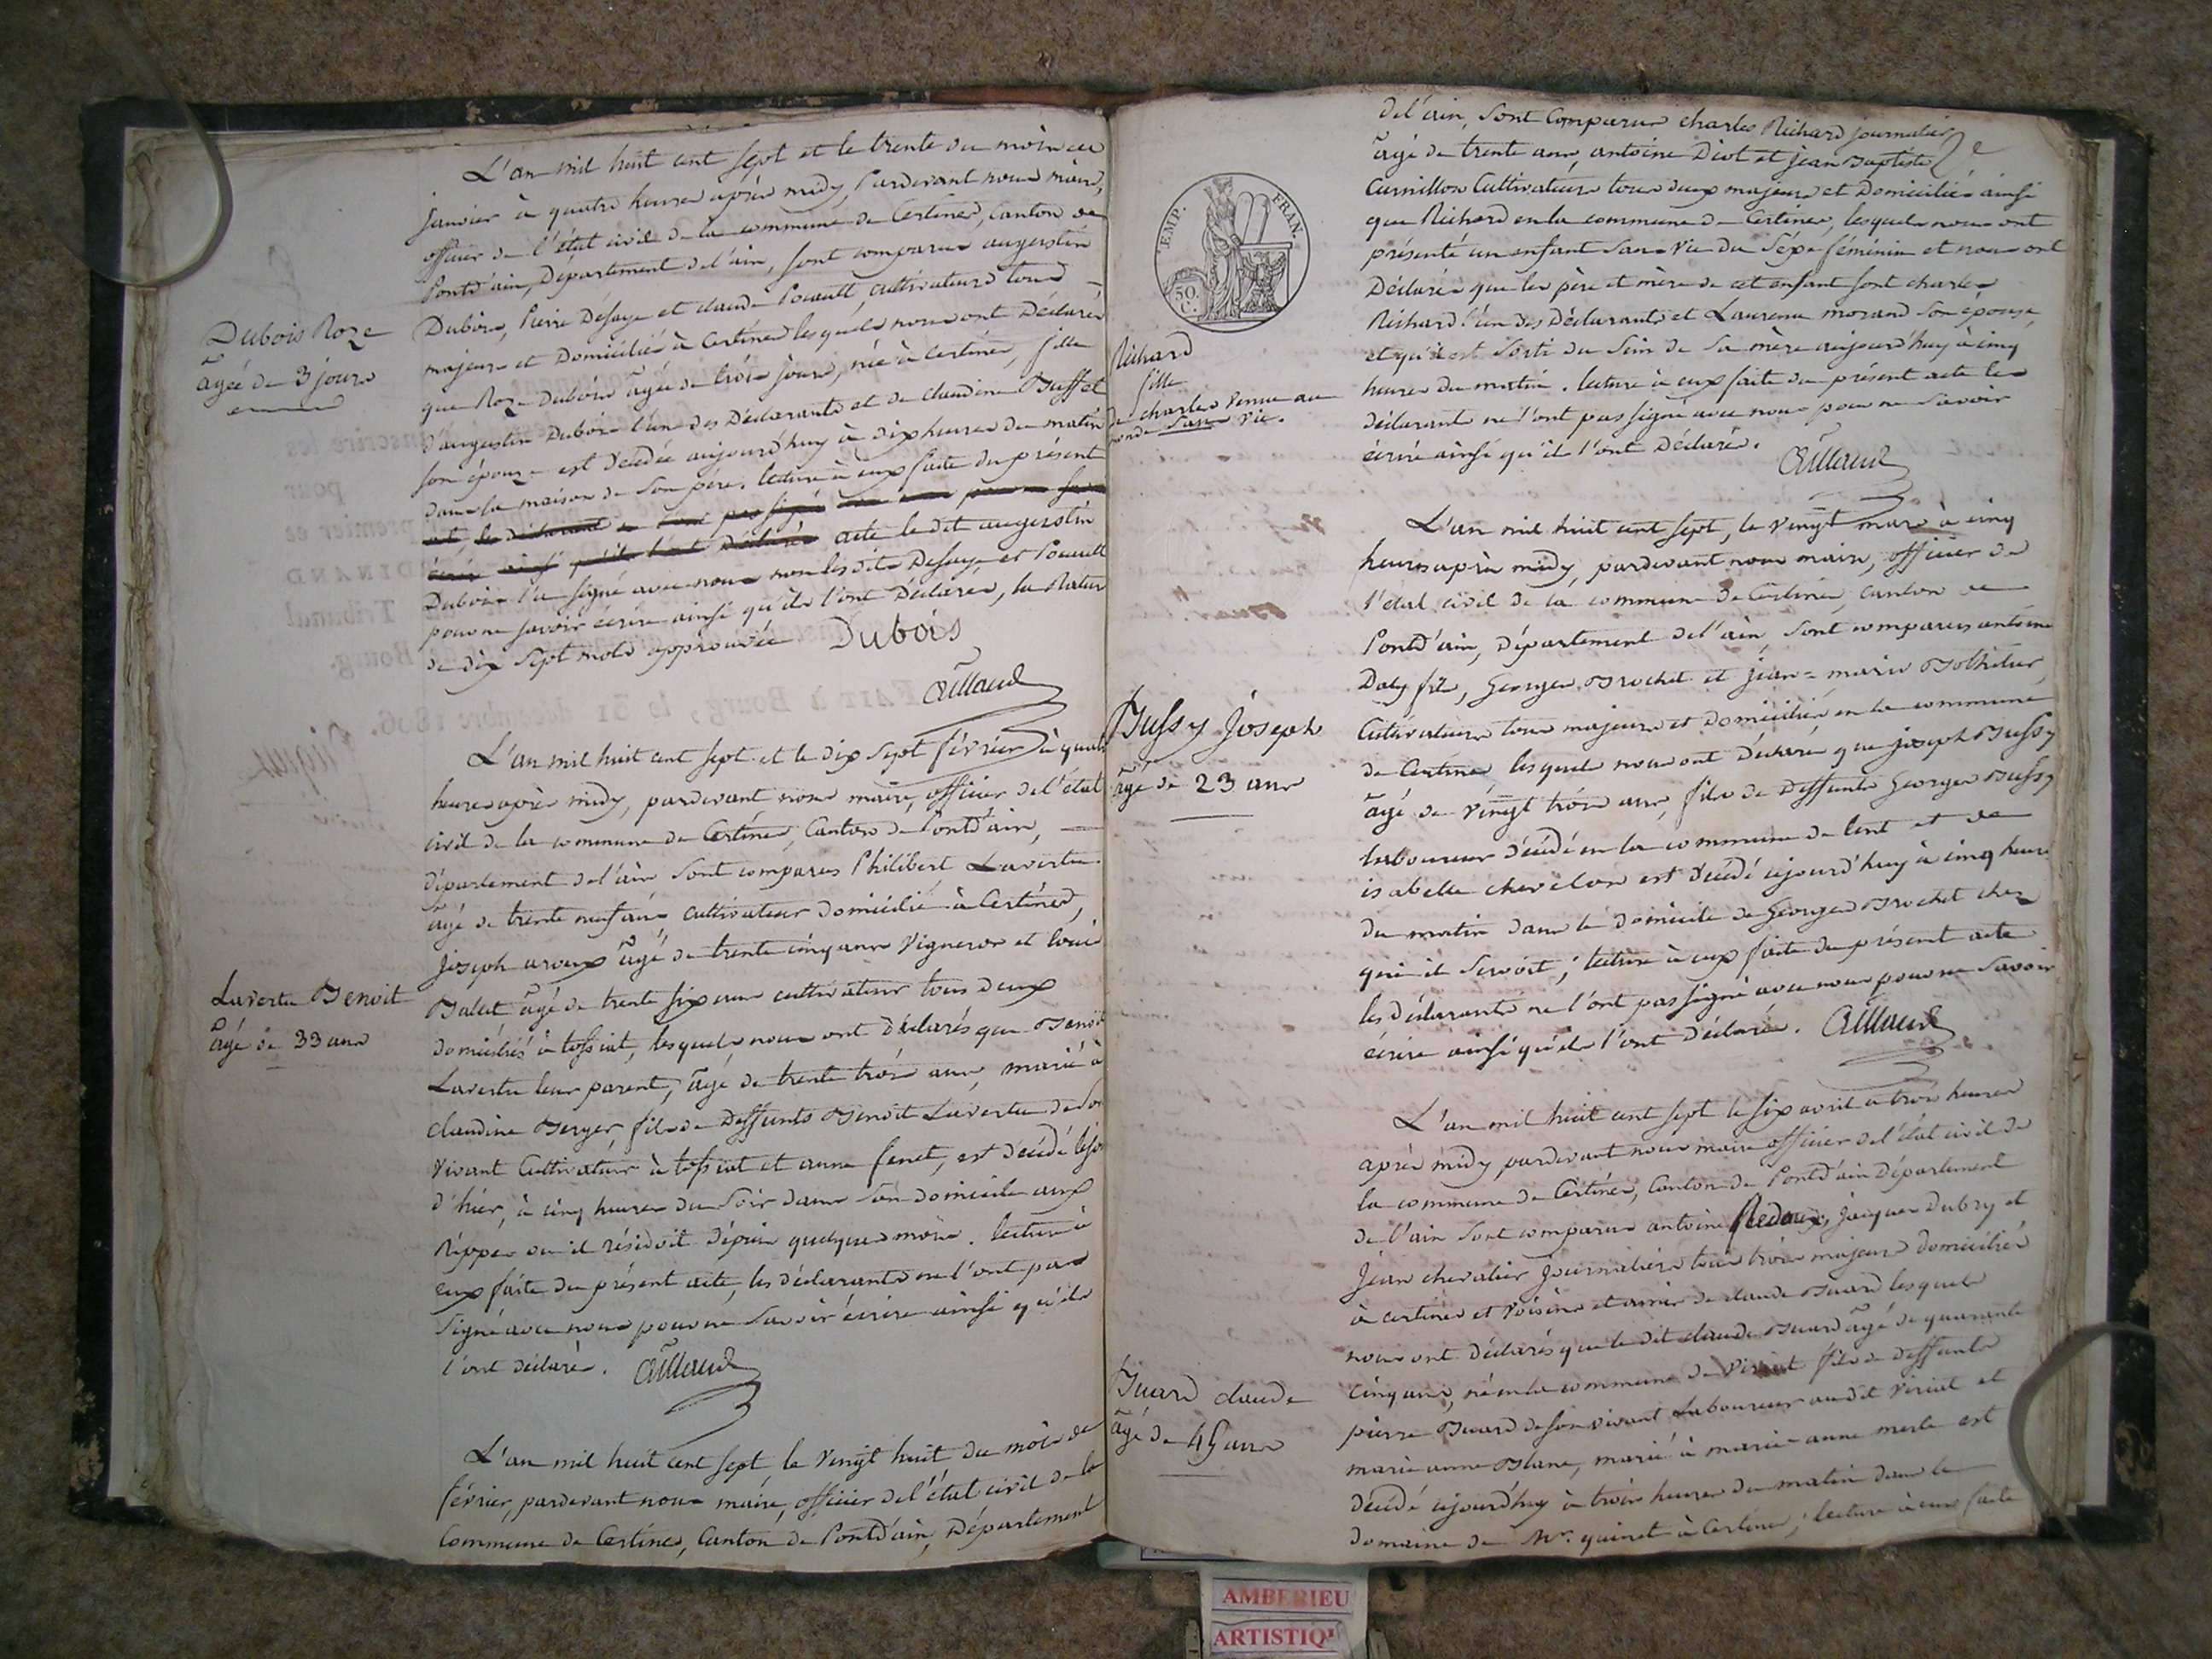 L'an mil huit cent sept et le trente du mois de
janvier à quatre heures après midy, pardevant nous maire,
officier de l'état civil de la commune de Certines, Canton de
Pontd'ain, Département de l'ain, sont comparus augustin
Dubois, Pierre Defaye et claude Pouault, cultivateurs tous
majeurs et Domiciliés à Certines lesquels nous ont Déclarés
que Roze Dubois âgée de trois jours, née à Certines, fille
d'augustin Dubois l'un des Déclarants et de claudine Buffet
son épouse est décédée aujourd'huy à dix heures du matin
dans la maison de son père. lecture à eux faite du présent
acte, les déclarants ne l'ont pas signé avec nous pour ne savoir
écrire ainsi qu'ils l'ont Déclarés acte le dit augustin
Dubois l'a signé avec nous non lesdits Defaye et Pouault
pour ne savoir écrire ainsi qu'ils l'ont Déclarés, la Rature
de dix sept mots approuvée Dubois
Dubois Roze
âgée de 3 jours
L'an mil huit cent sept et le dix sept février à quatre
heures après midy, pardevant nous maire, officier de l'état
civil de la commune de Certines, Canton de Pontd'ain,
département de l'ain sont comparus Philibert Lavertu
âgé de trente neuf ans cultivateur domicilié à Certines,
joseph âgé de trente cinq ans vigneron et louis
Balet âgé de trente six ans cultivateur tous deux
domiciliés à tossiat, lesquels nous ont déclarés que Benoit
Lavertu leur parent, âgé de trente trois ans, marié à
claudine Berger, fils de Deffunts Benoit Lavertu de son
vivant Cultivateur à tossiat et anne fenet, est décédé le jour
d'hier, à cinq heures du soir dans son domicile aux
Rippes où il résidoit depuis quelques mois. lecture à
eux faite du présent acte, les déclarants ne l'ont pas
signé avec nous pour ne savoir écrire ainsi qu'ils
l'ont déclaré.
Lavertu Benoit
âgé de 33 ans
L'an mil huit cent sept le vingt huit du mois de
février, pardevant nous maire, officier de l'état civil de la
commune de Certines, Canton de Pontd'ain, Département
EMP. FRAN.
50.
C.
de l'ain, sont Comparus charles Richard journalier
âgé de trente ans, antoine Diot et jean Baptiste
Curnillon Cultivateurs tous deux majeurs et Domiciliés ainsi
que Richard en la commune de Certines, lesquels nous ont
présenté un enfant sans vie du sexe féminin et nous ont
Déclarés que les père et mère de cet enfant sont charles
Richard l'un des Déclarants et Laurence morand son épouse,
et qu'il est sorti du sein de sa mère aujourd'huy à cinq
heures du matin. lecture à eux faite du présent acte les
déclarants ne l'ont pas signé avec nous pour ne savoir
écrire ainsi qu'ils l'ont Déclarés.
Richard
fille
de charles venue au
monde sans vie.
L'an mil huit cent sept, le vingt mars à cinq
heures après midy, pardevant nous maire, officier de
l'état civil de la commune de Certines, canton de
Pontd'ain, Département de l'ain, sont comparus antoine
Daty fils, Georges Brochet et jean-marie Bothelier
Cultivateurs tous majeurs et domiciliés en la commune
de Certines, lesquels nous ont déclarés que joseph Bussy
âgé de vingt trois ans, fils de Deffunts Georges Bussy
laboureur décédé en la commune de lent et de
isabelle chevelon est décédé cejourd'huy à cinq heures
du matin dans le domicile de Georges Brochet chez
qui il servoit; lecture à eux faite du présent acte
les déclarants ne l'ont pas signé avec nous pour ne savoir
écrire ainsi qu'ils l'ont déclarés.
Bussy joseph
âgé de 23 ans
L'an mil huit cent sept le six avril à trois heures
après midy, pardevant nous maire officier de l'état civil de
la commune de Certines, Canton de Pontd'ain Département
de l'ain sont comparus antoine Redoux, jacques Dubry et
jean chevalier journaliers tous trois majeurs domiciliés
à certines et voisins et amis de claude Buard lesquels
nous ont déclarés que le dit claude Buard âgé de quarante
cinq ans, né en la commune de viriat fils de deffunts
pierre Buard de son vivant Laboureur au dit viriat et
marie anne Blanc, marié à marie-anne merle est
décédé cejourd'huy à trois heures du matin dans le
domaine de Mr. quinet à Certines; lecture à eux faite
Buard claude
âgé de 45 ans
AMBERIEU
ARTISTIQ